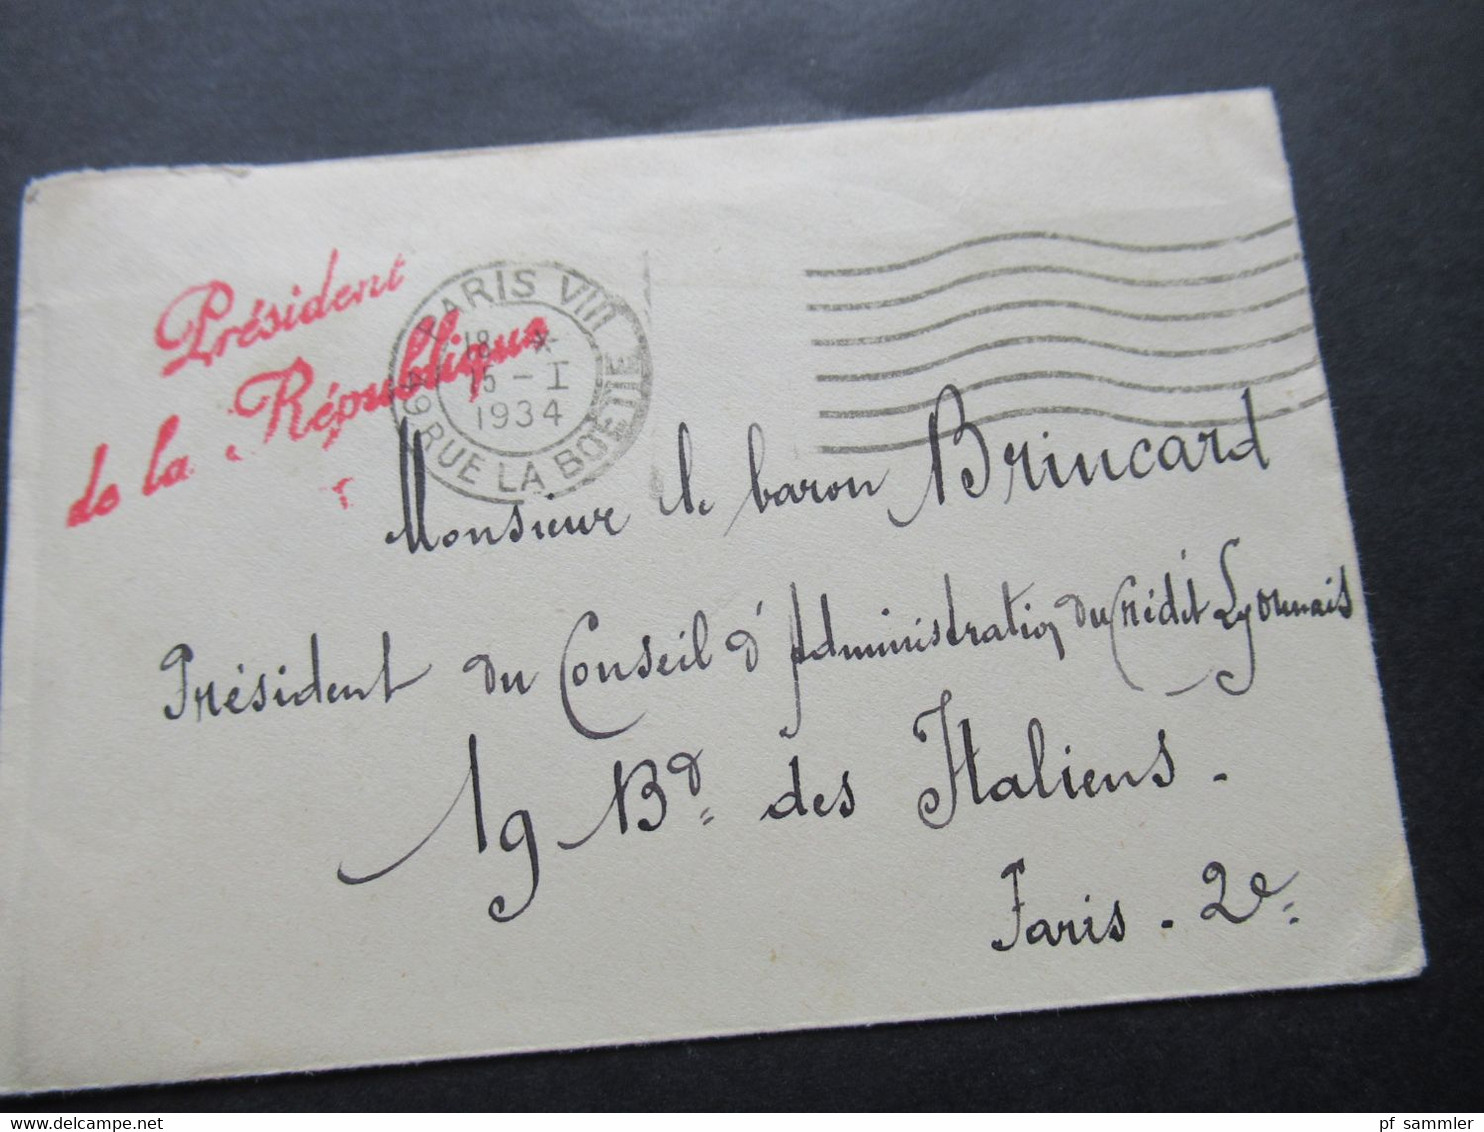 Président
de la République
PARIS VIII
18 H
15 - I
1934
49 RUE LA BOETIE
Monsieur le baron Brincard
Président du Conseil d'Administration du Crédit Lyonnais
19 Bd. des Italiens.
Paris. 2e.
pf_sammler